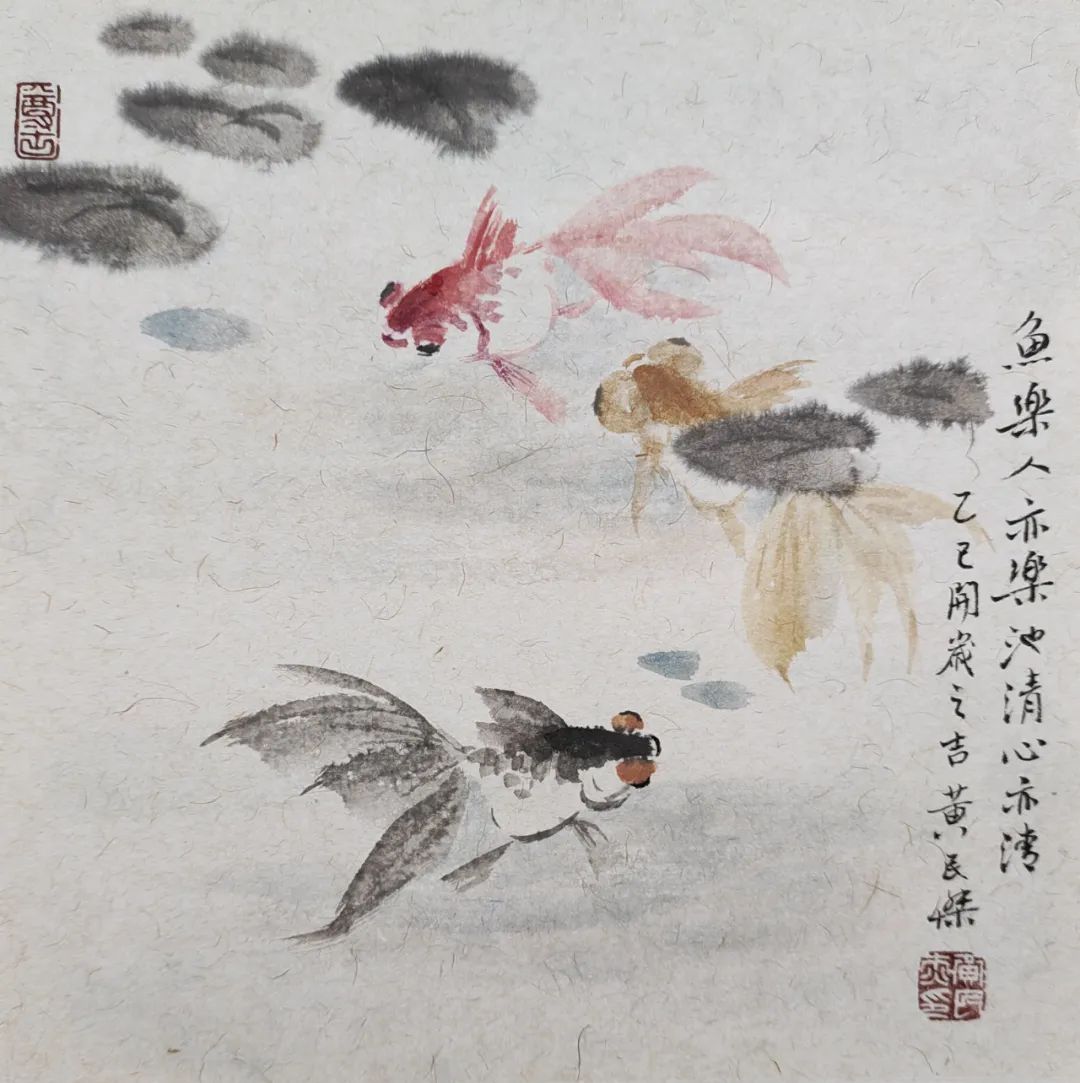 魚樂人亦樂池清心亦清
乙巳開歲之吉黃民傑